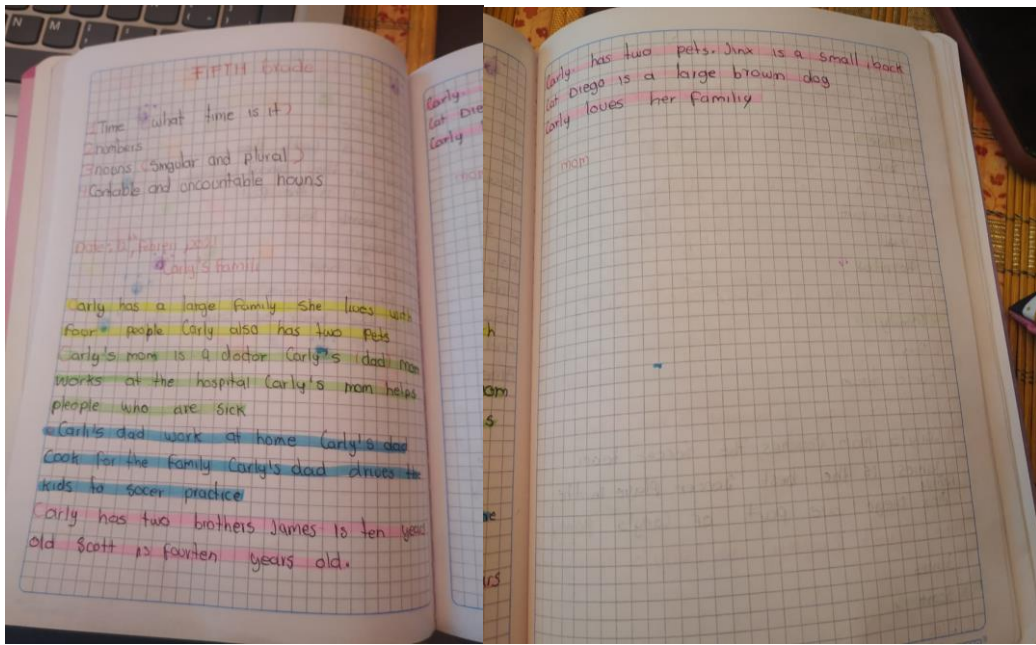 FIFTH Grade
1 Time what time is it)
2 numbers
3 nouns (singular and plural)
4 Contable and oncountable nouns
Date: Febrery
Carly's Famili
Carly has a large family She lives with
four people Carly also has two Pets
Carly's mom is a doctor Carly's dad mom
works at the hospital Carly's mom helps
pleople who are sick
Carli's dad work at home Carly's dad
Cook for the Family Carly's dad drives to
kids to socer practice
Carly has two brothers James is ten year
old Scott is fourten years old.
Carly
Cat Die
Carly
Carly has two pets. Jinx is a small back
Cat Diego is a large brown dog
Carly loves her familiy
mom